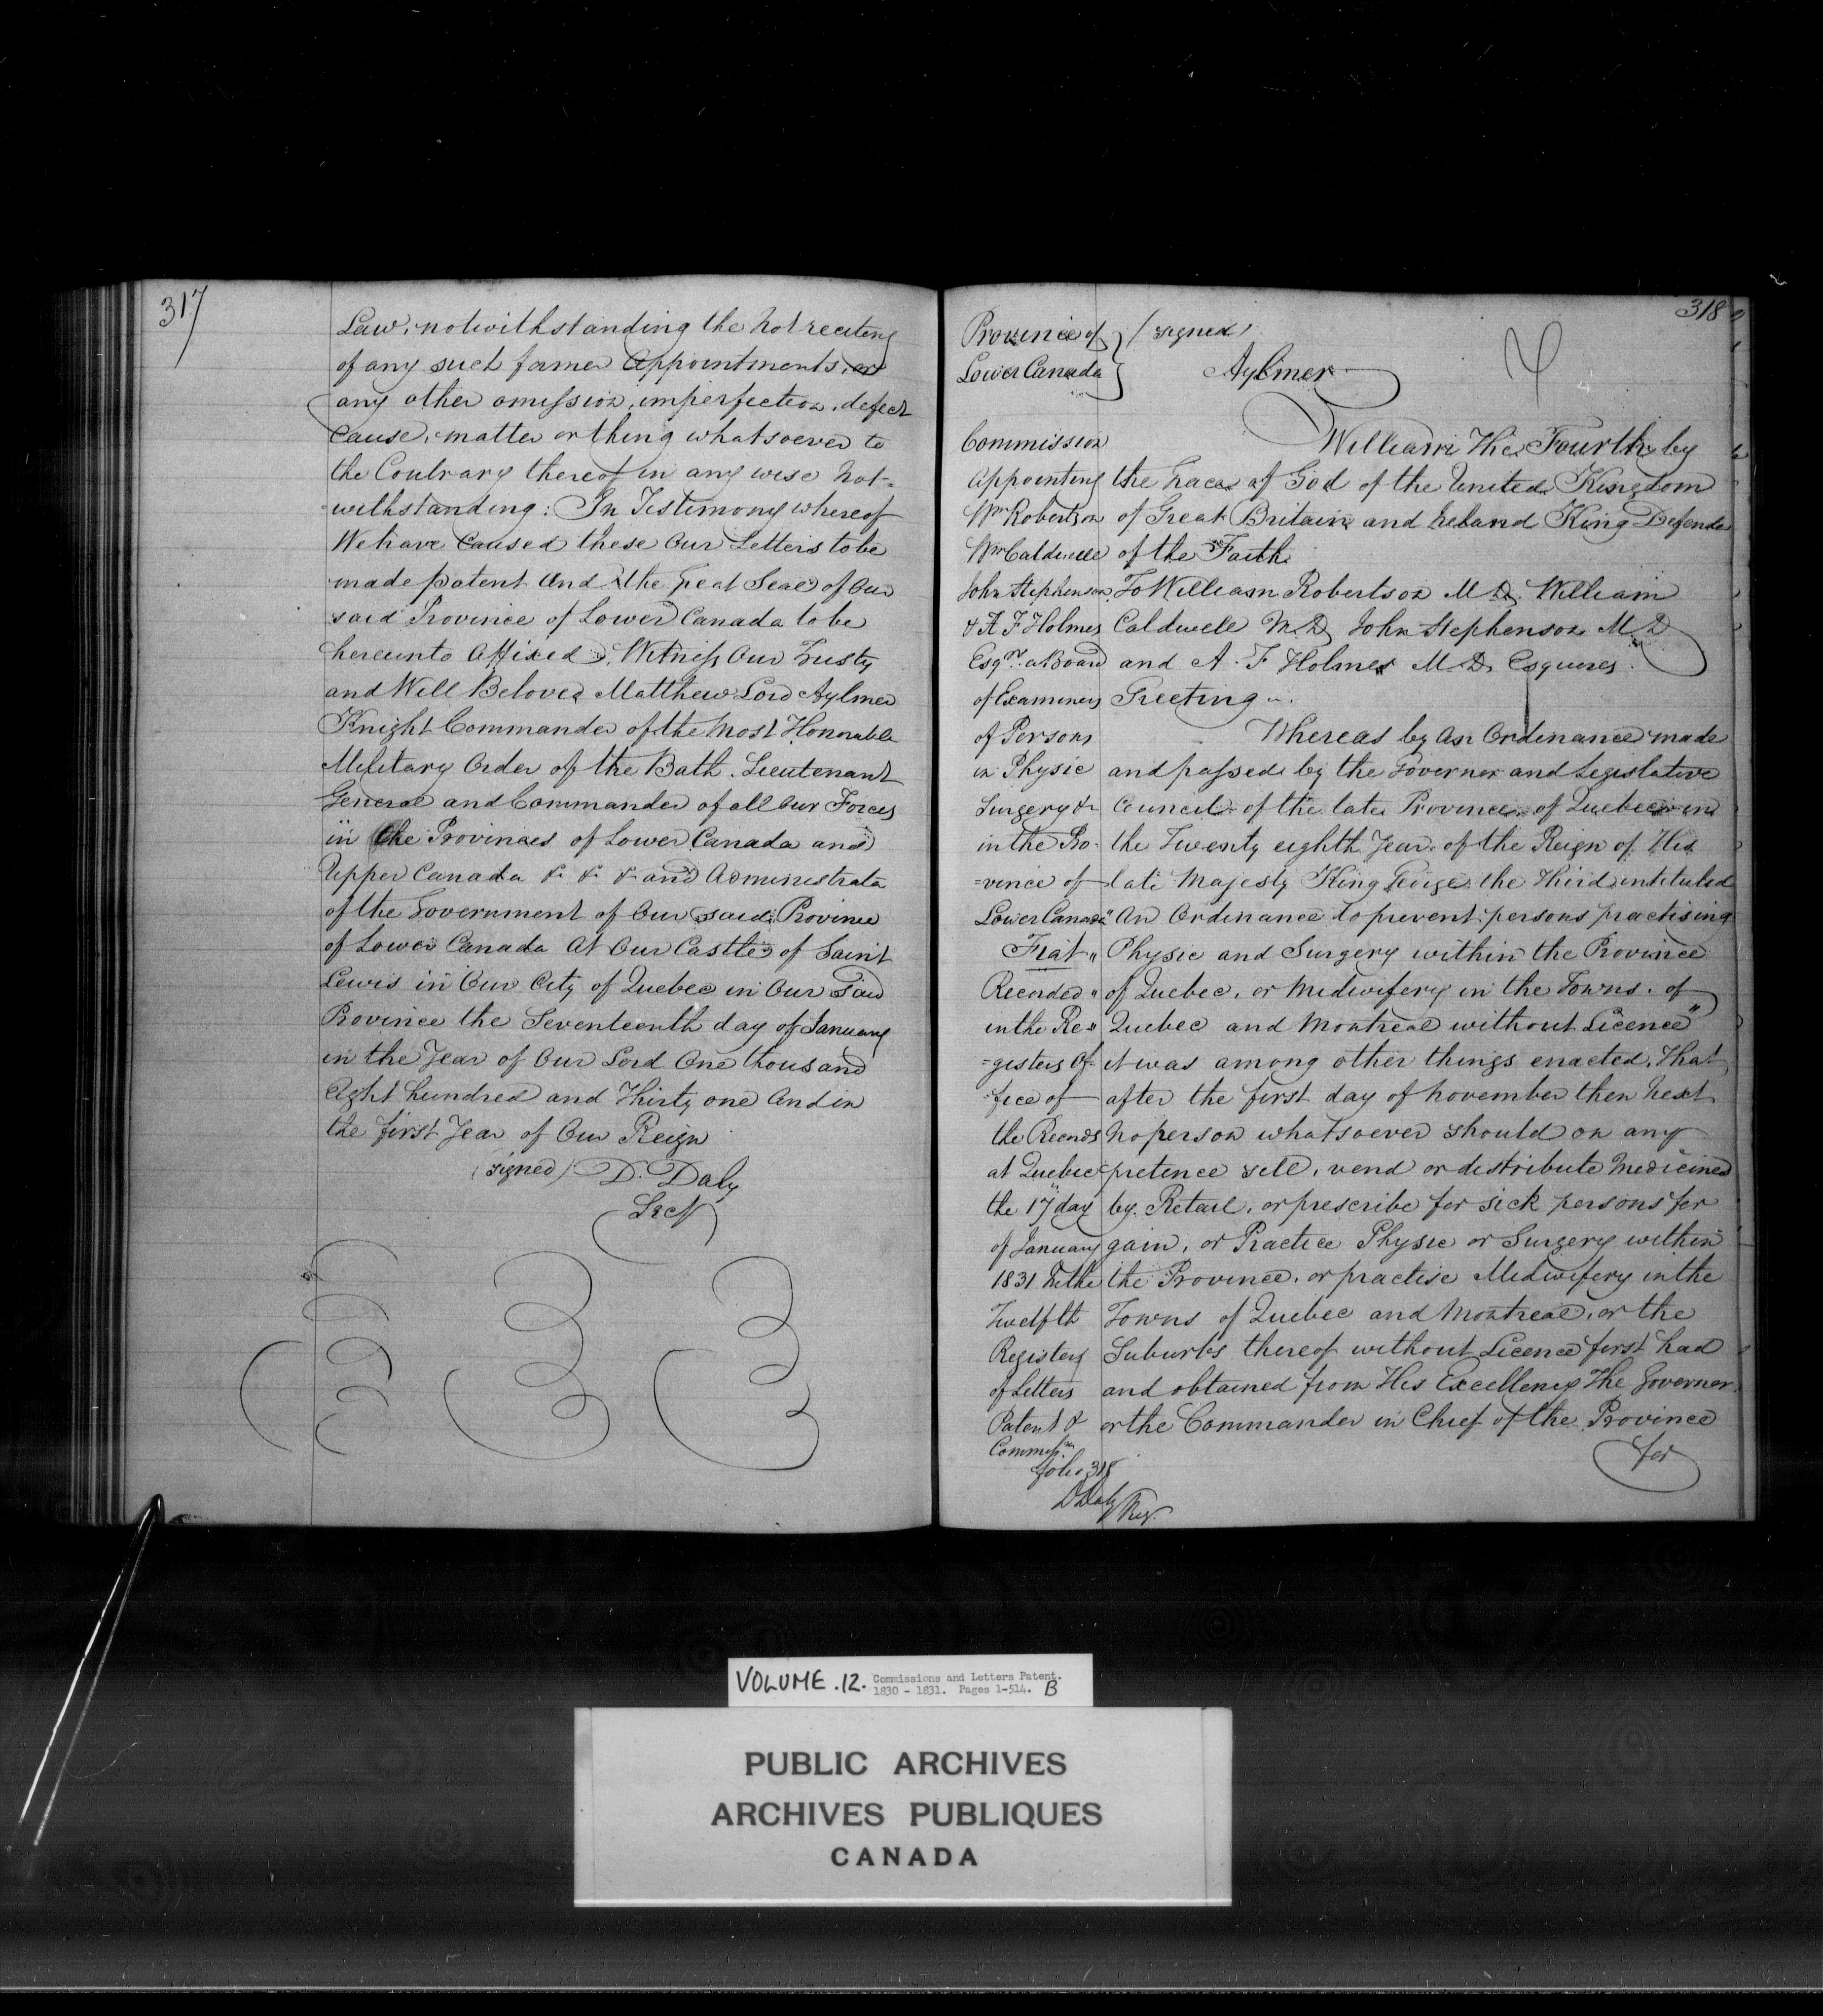 317
Law, notwithstanding the not reciting
of any such former Appointments, or
any other omission, imperfection, defect
Cause, matter or thing whatsoever to
the Contrary thereof in any wise not-
withstanding: In Testimony whereof
We have Caused these Our Letters to be
made patent and the Great Seal of Our
said Province of Lower Canada to be
hereunto Affixed, Witness Our Trusty
and Well Beloved Matthew Lord Aylmer
Knight Commander of the Most Honorable
Military Order of the Bath. Lieutenant
General and Commander of all Our Forces
in the Provinces of Lower Canada and
Upper Canada &c &c &c and Administrator
of the Government of Our said Province
of Lower Canada At Our Castle of Saint
Lewis in Our City of Quebec in Our said
Province the Seventeenth day of January
in the Year of Our Lord One thousand
Eight hundred and Thirty one And in
the first Year of Our Reign
(signed) D. Daly
Secy
318
Province of
Lower Canada
(signed)
Aylmer
Commission
Appointing
Wm Robertson
Wm Caldwell
John Stephenson
& A F Holmes
Esqrs. a Board
of Examiners
of Persons
in Physic
Surgery &c
in the Pro-
=vince of
Lower Canada
Fiat
Recorded
in the Re-
=gisters Of-
=fice of
the Records
at Quebec
the 17th day
of January
1831 In the
Twelfth
Register
of Letters
Patent &
Commissns
folio 318
D Daly Reg.
William The Fourth by
the Grace of God of the United Kingdom
of Great Britain and Ireland King Defender
of the Faith
To William Robertson M.D. William
Caldwell M.D. John Stephenson M D
and A. F Holmes M.D. Esquires.
Greeting.
Whereas by An Ordinance made
and passed by the Governor and Legislative
Council of the late Province of Quebec in
the Twenty eighth Year of the Reign of His
late Majesty King George the Third intituled
"An Ordinance to prevent persons practising
" Physic and Surgery within the Province
" of Quebec, or Midwifery in the Towns of
" Quebec and Montreal without Licence"
it was among other things enacted, That
after the first day of November then next
no person whatsoever should on any
pretence sell, vend or distribute Medicines
by Retail, or prescribe for sick persons for
gain, or Practice Physic or Surgery within
the Province, or practise Midwifery in the
Towns of Quebec and Montreal, or the
Suburbs thereof without Licence first had
and obtained from His Excellency The Governor
or the Commander in Chief of the Province
for
VOLUME .12. Commissions and Letters Patent.
1830 - 1831. Pages 1-514. B
PUBLIC ARCHIVES
ARCHIVES PUBLIQUES
CANADA